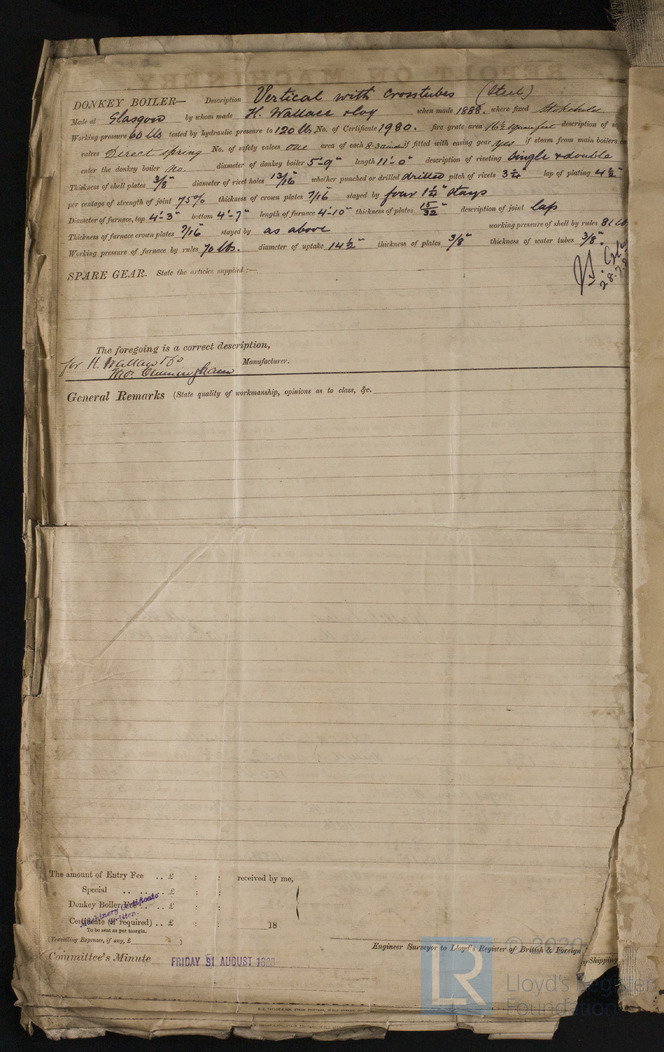 DONKEY BOILER— Description Vertical with Crosstubes (Steel)
Made at Glasgow by whom made H. Wallace & Coy when made 1888. where fixed Stokehold
Working pressure 60 lbs tested by hydraulic pressure to 120 lbs No. of Certificate 1980. fire grate area 16½ square feet description of
valves Direct spring No. of safety valves one area of each fitted with easing gear yes if steam from main boilers
enter the donkey boiler No diameter of donkey boiler 5'-9" length 11'-0" description of riveting Single & double
Thickness of shell plates 3/8" diameter of rivet holes 13/16" whether punched or drilled drilled pitch of rivets lap of plating 4½"
per centage of strength of joint 75% thickness of crown plates 7/16" stayed by four 1½" stays
Diameter of furnace, top 4'-3" bottom 4'-7" length of furnace 4'-10" thickness of plates 15/32" description of joint lap
Thickness of furnace crown plates 7/16" stayed by as above working pressure of shell by rules 81 lbs
Working pressure of furnace by rules 70 lbs. diameter of uptake 14½" thickness of plates 3/8" thickness of water tubes 3/8"
SPARE GEAR. State the articles supplied:—
28.7.8
The foregoing is a correct description,
for H. Wallace & Co Manufacturer.
Cunningham
General Remarks (State quality of workmanship, opinions as to class, &c.
The amount of Entry Fee .. £ : : received by me,
Special .. .. £ : :
Donkey Boiler Fee .. £ : :
Machinery Certificate
Certificate (if required) .. £ 18
To be sent as per margin.
(Travelling Expenses, if any, £ )
Engineer Surveyor to Lloyd's Register of British & Foreign Shipping
Committee's Minute FRIDAY 31 AUGUST 1888
© 2020
LR Lloyd's Register
Foundation